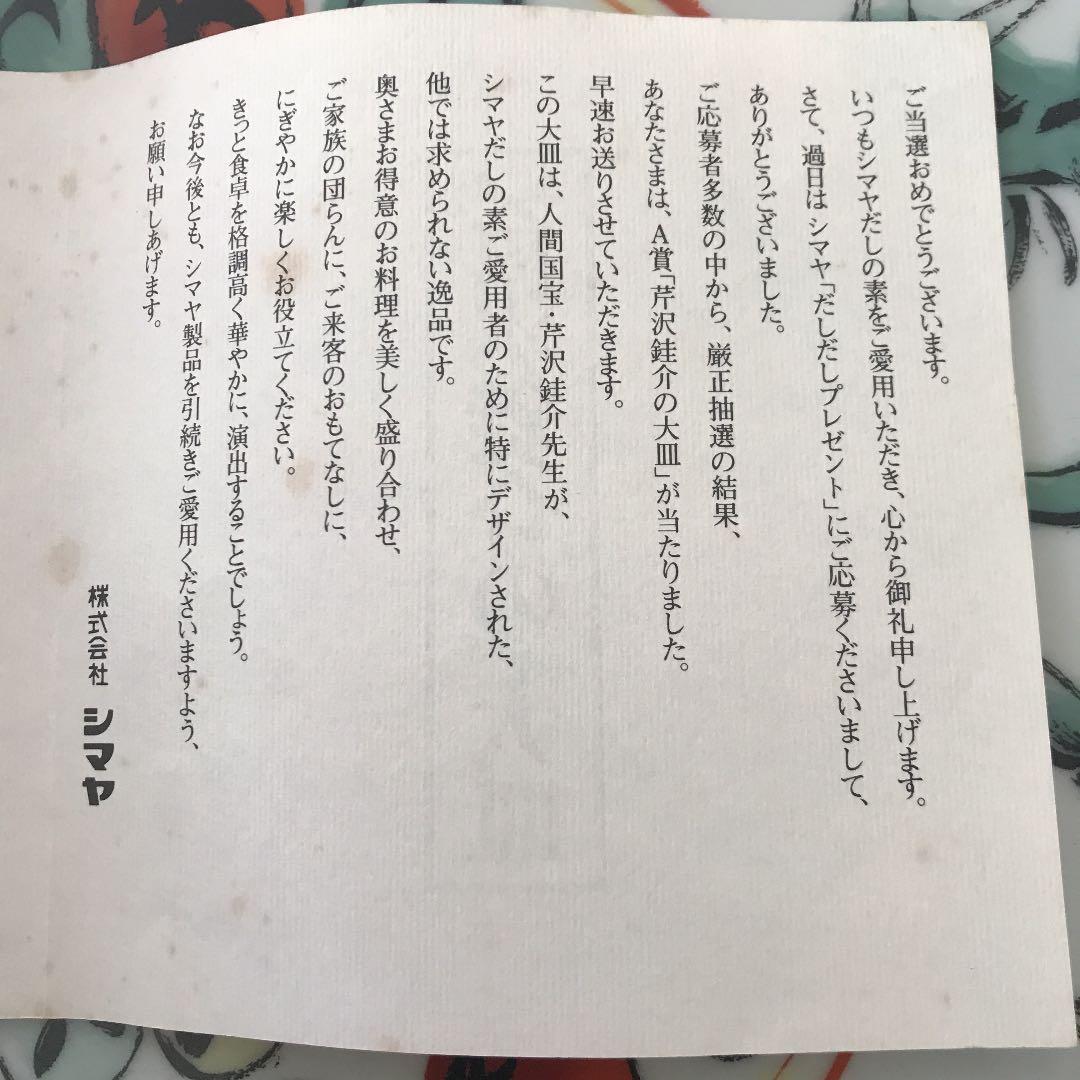 ご当選おめでとうございます。
いつもシマヤだしの素をご愛用いただき、心から御礼申し上げます。
さて、過日は シマヤ「だしだしプレゼント」にご応募くださいまして、
ありがとうございました。
ご応募者多数の中から、厳正抽選の結果、
あなたさまは、A賞「芹沢銈介の大皿」が当たりました。
早速お送りさせていただきます。
この大皿は、人間国宝・芹沢銈介先生が、
シマヤだしの素ご愛用者のために特にデザインされた、
他では求められない逸品です。
奥さまお得意のお料理を美しく盛り合わせ、
ご家族の団らんに、ご来客のおもてなしに、
にぎやかに楽しくお役立てください。
きっと食卓を格調高く華やかに、演出することでしょう。
なお今後とも、シマヤ製品を引続きご愛用くださいますよう、
お願い申しあげます。
株式会社 シマヤ